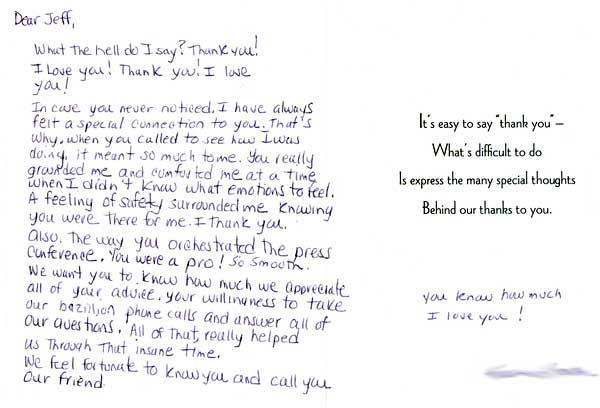 Dear Jeff,
What the hell do I say? Thank you!
I Love you! Thank you! I love
you!
In case you never noticed, I have always
felt a special connection to you. That's
why, when you called to see how I was
doing, it meant so much to me. You really
grounded me and comforted me at a time
when I didn't know what emotions to feel.
A feeling of safety surrounded me knowing
you were there for me. I Thank you.
Also. The way you orchestrated the press
conference. You were a pro! So smooth.
We want you to know how much we appreciate
all of your advice. your willingness to take
our bazillion phone calls and answer all of
our questions. All of That, really helped
us Through That insane time.
We feel fortunate to know you and call you
Our friend.
It's easy to say "thank you"—
What's difficult to do
Is express the many special thoughts
Behind our thanks to you.
you know how much
I love you!